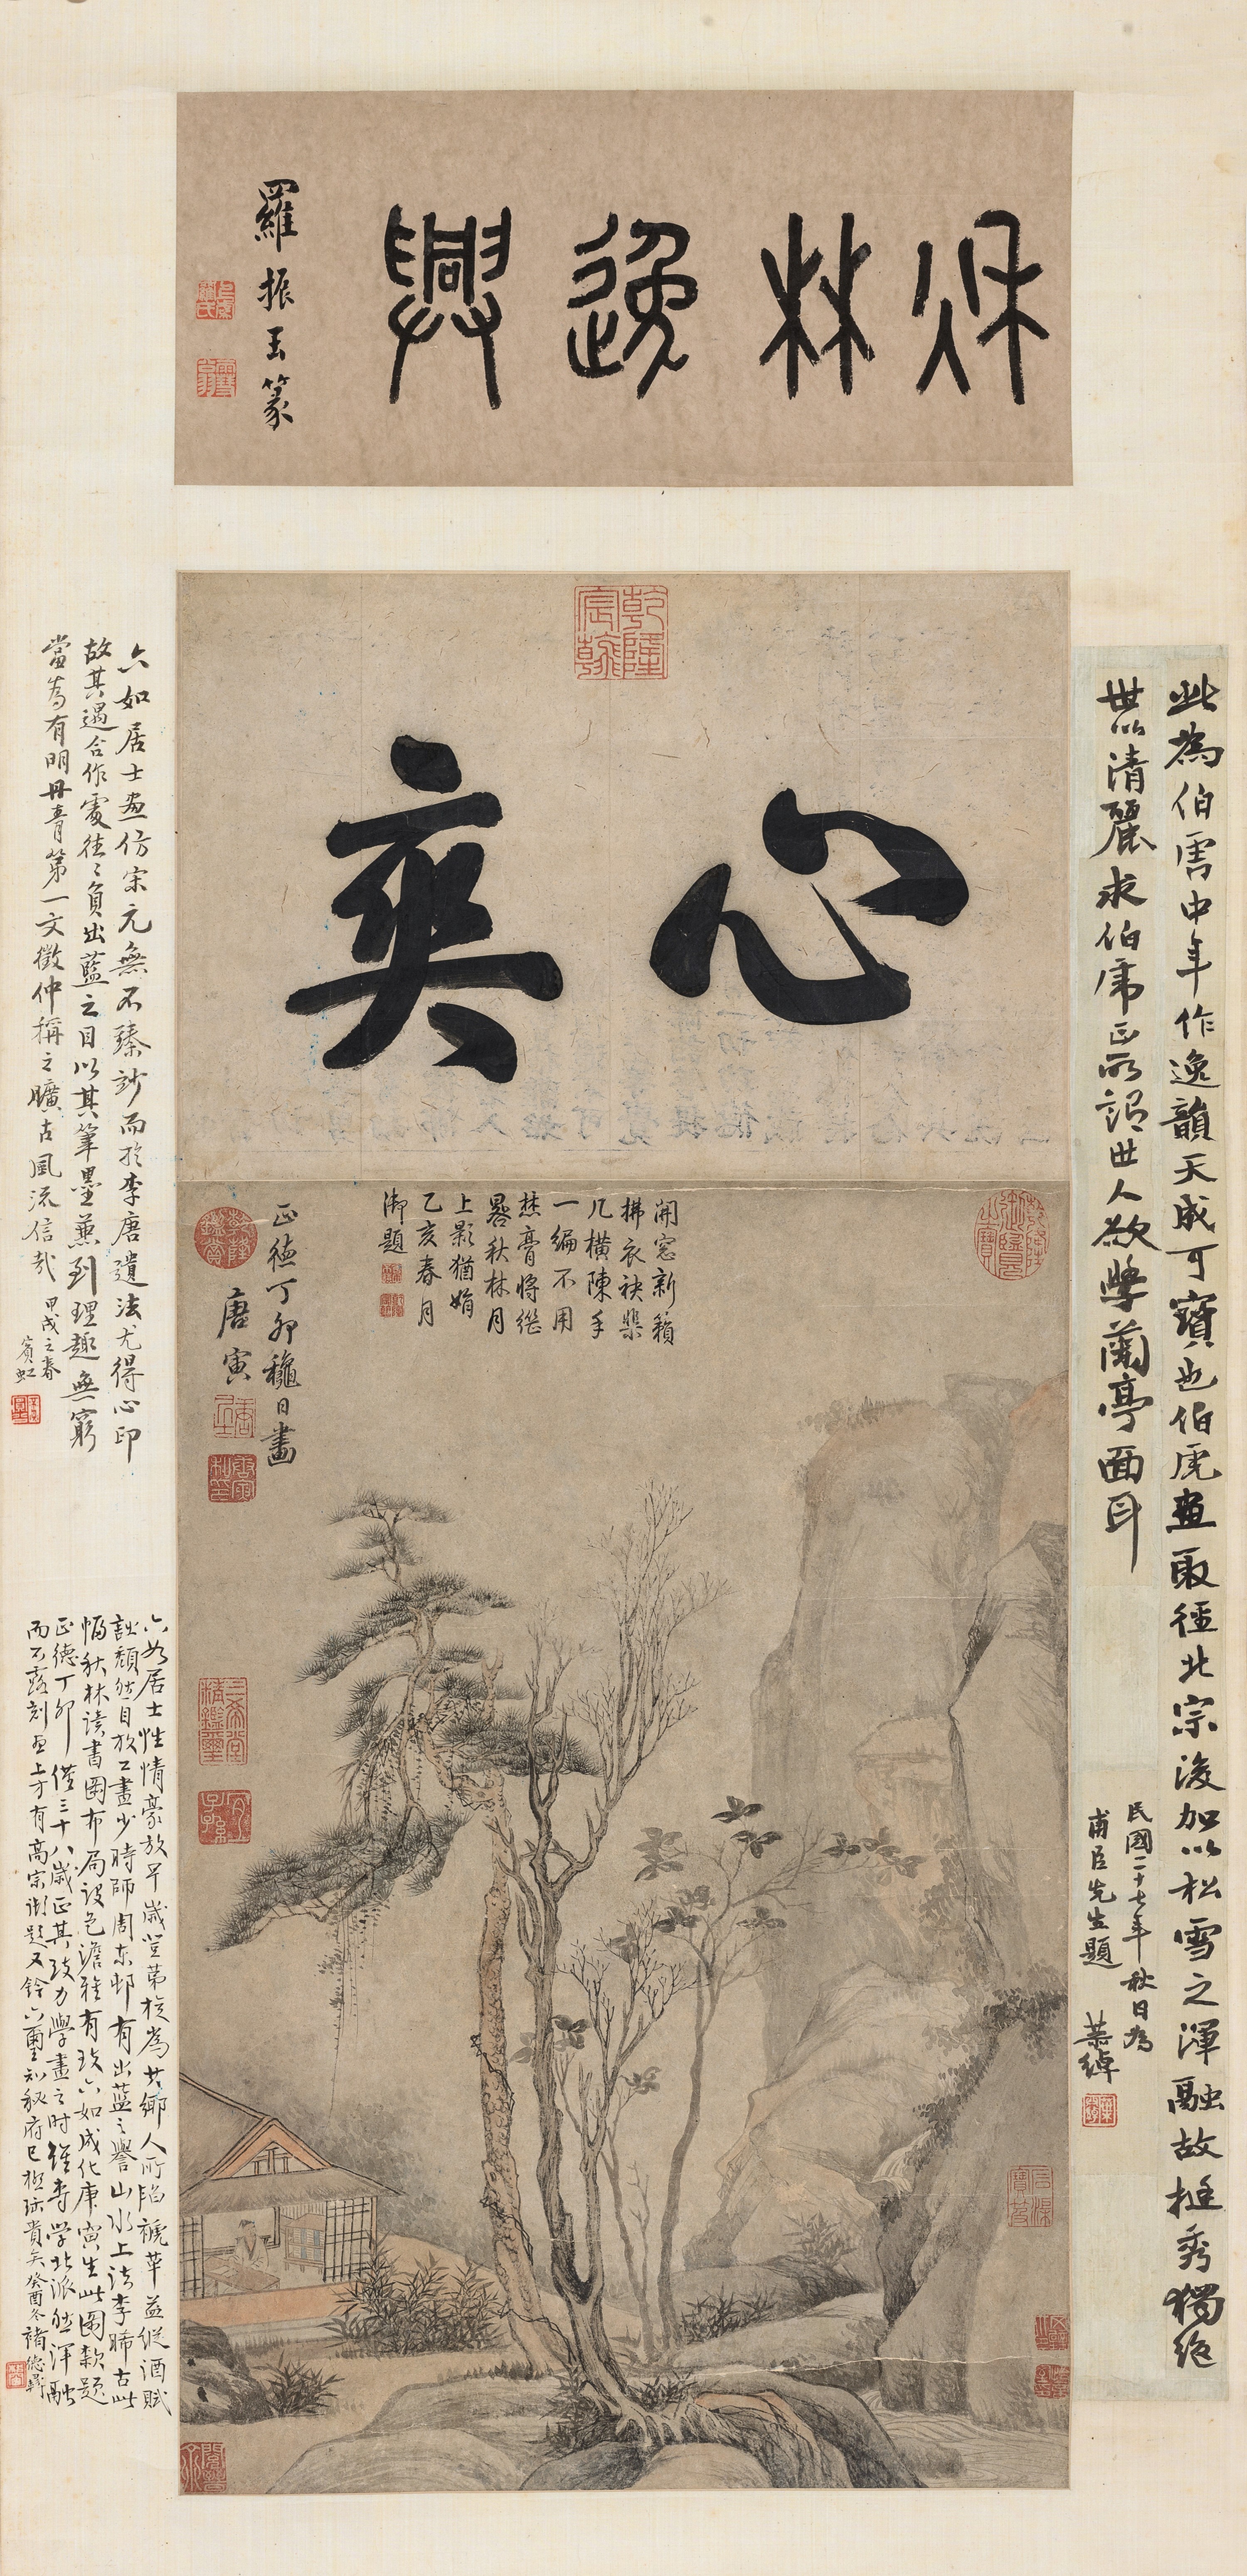 秋林逸興
羅振玉篆
乾隆宸翰
心奕
開窓新籟
拂衣袂棐
几橫陳手
一編不用
焚膏將繼
晷秋林月
上影猶娟
乙亥春月
御題
正德丁卯穐日畫
唐寅
此為伯虎中年作逸韻天成可寶也伯虎畫取徑北宗後加以松雪之渾融故挺秀獨絕
世以清麗求伯虎正所謂世人欲學蘭亭面耳
民國二十七年秋日為
甫臣先生題 恭綽
六如居士畫仿宋元無不臻妙而於李唐遺法尤得心印
故其遇合作處往往負出藍之目以其筆墨兼到理趣無窮
當為有明丹青第一文徵仲稱之曠古風流信哉 甲戌之春
賓虹
六如居士性情豪放早歲登第旋為其鄉人所陷褫革益縱酒賦
詩頹然自放工畫少時師周東邨有出藍之譽山水上法李晞古此
幅秋林讀書圖布局設色澹雅有致六如成化庚寅生此圖款題
正德丁卯僅三十八歲正其致力學畫之時雖專學北派然渾融
而不露刻畫上方有高宗御題又鈐六璽知秘府已極珍貴矣癸酉冬褚德彝